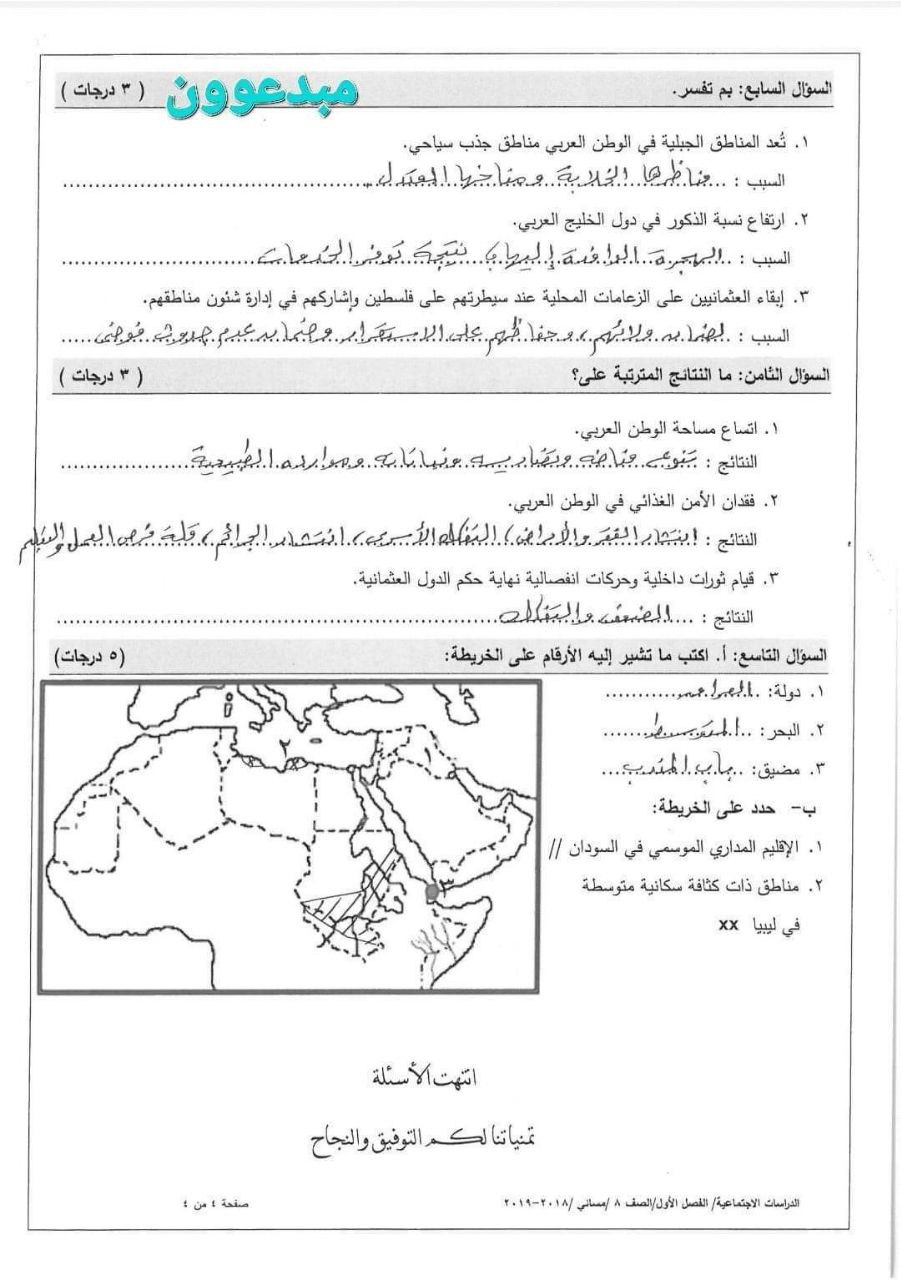 السؤال السابع: بم تفسر. مبدعوون ( ٣ درجات )
١. تُعد المناطق الجبلية في الوطن العربي مناطق جذب سياحي.
السبب : مناظرها الخلابة ومناخها المعتدل
٢. ارتفاع نسبة الذكور في دول الخليج العربي.
السبب : الهجرة الوافدة إليها، نتيجة توفر الخدمات
٣. إبقاء العثمانيين على الزعامات المحلية عند سيطرتهم على فلسطين وإشاركهم في إدارة شئون مناطقهم.
السبب : لضمان ولائهم، وحفاظهم على الاستقرار وضمان عدم حدوث فوضى
السؤال الثامن: ما النتائج المترتبة على؟ ( ٣ درجات )
١. اتساع مساحة الوطن العربي.
النتائج : تنوع مناخه وتضاريسه ونباتاته وموارده الطبيعية
٢. فقدان الأمن الغذائي في الوطن العربي.
النتائج : انتشار الفقر والأمراض، التفكك الأسري، انتشار الجرائم، قلة فرص العمل والتعليم
٣. قيام ثورات داخلية وحركات انفصالية نهاية حكم الدول العثمانية.
النتائج : الضعف والتفكك
السؤال التاسع: أ. اكتب ما تشير إليه الأرقام على الخريطة: (٥ درجات)
١. دولة: العراق
٢. البحر: المتوسط
٣. مضيق: باب المندب
ب- حدد على الخريطة:
١. الإقليم المداري الموسمي في السودان //
٢. مناطق ذات كثافة سكانية متوسطة
في ليبيا xx
١
٢
٣
انتهت الأسئلة
تمنياتنا لكم التوفيق والنجاح
الدراسات الاجتماعية/ الفصل الأول/الصف ٨ /مسائي /٢٠١٨-٢٠١٩ صفحة ٤ من ٤